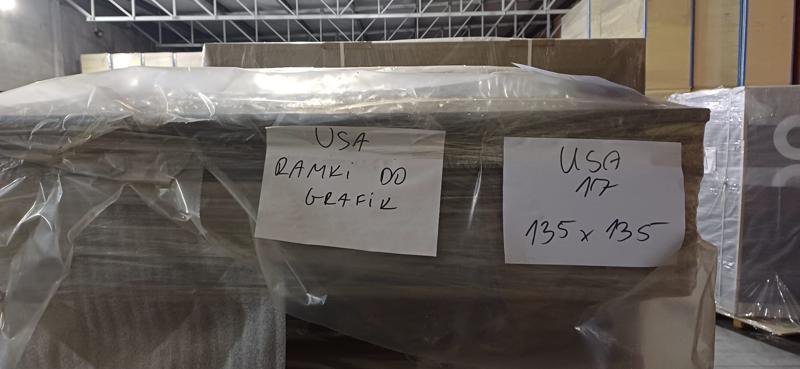 USA
RAMKi DO
GRAFiK
USA
17
135 x 135